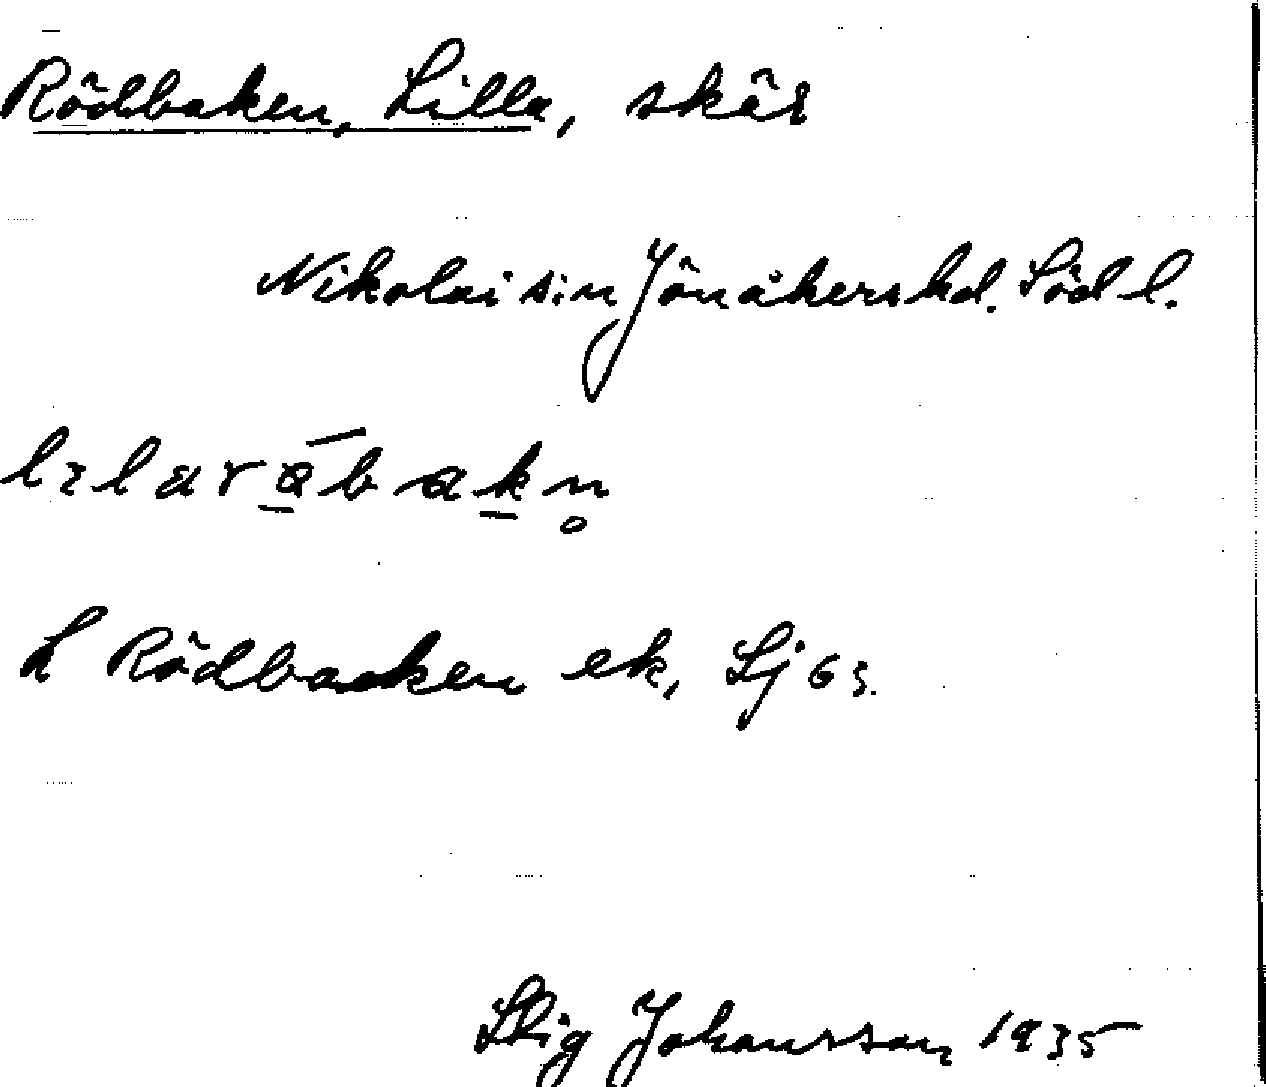 Rödbaken, Lilla, skär
Nikolai sn Jönåkers hd. Södl.
L Rödbacken ek, Sj 63.
Stig Johansson 1935